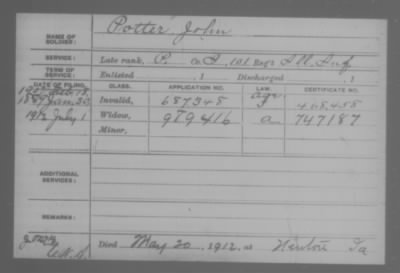 NAME OF SOLDIER: Potter, John
SERVICE: Late rank, P. Co. I, 101 Reg't Ill. Inf
TERM OF SERVICE: Enlisted , 1 Discharged , 1
DATE OF FILING. CLASS. APPLICATION NO. LAW. CERTIFICATE NO.
1887 Jan. 30 Invalid, 687348 468458
1912 July 1 Widow, 989416 a 747187
Minor,
ADDITIONAL SERVICES:
REMARKS:
Died May 20, 1912, at Newton Ia